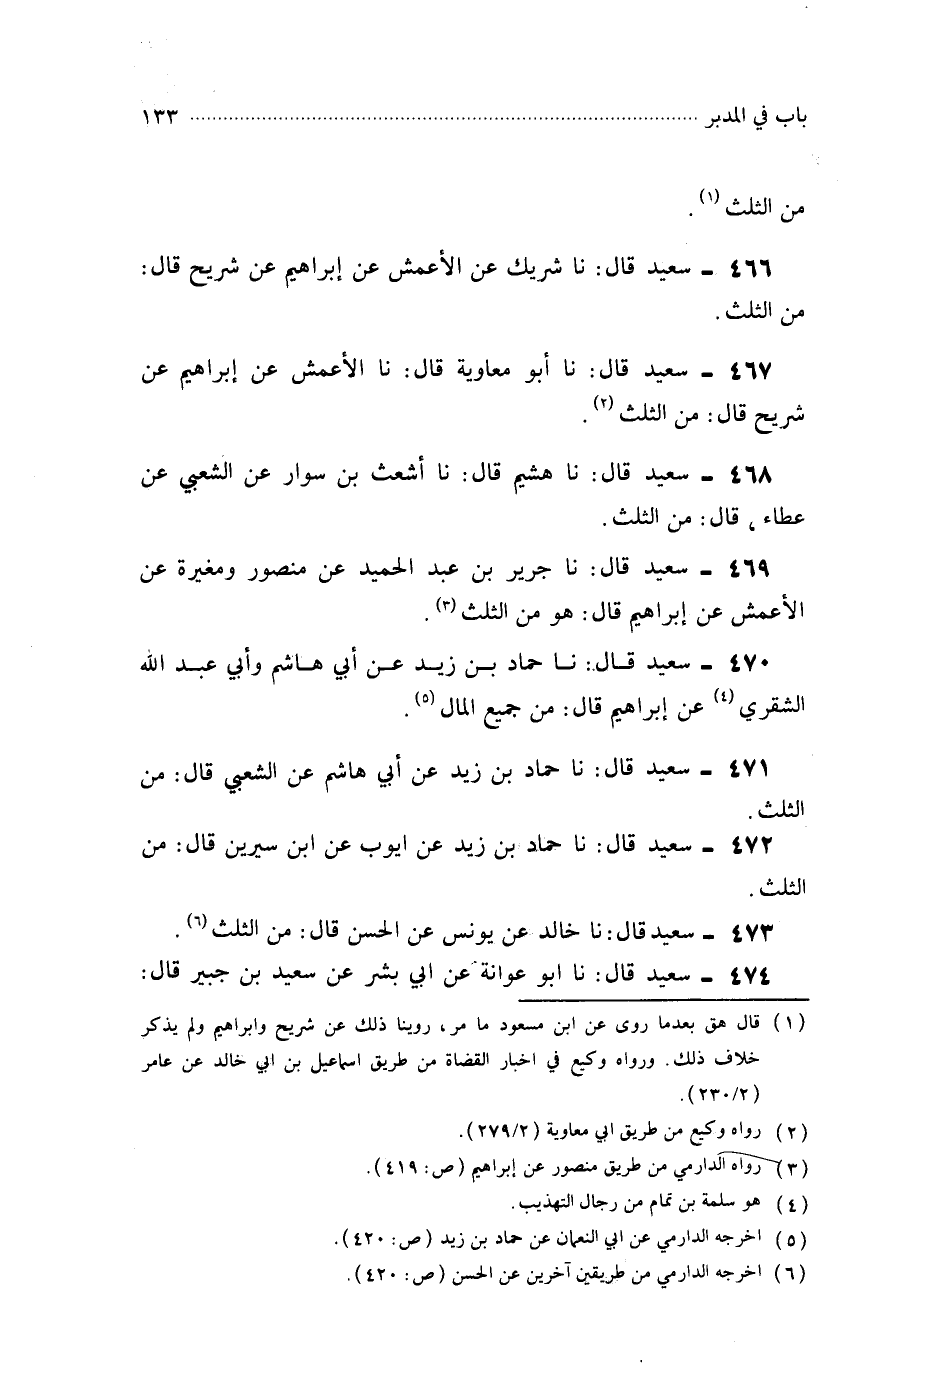 باب في المدبر ........................................................ ١٣٣
من الثلث (١) .
٤٦٦ ـ سعيد قال: نا شريك عن الأعمش عن إبراهيم عن شريح قال:
من الثلث .
٤٦٧ ـ سعيد قال: نا أبو معاوية قال: نا الأعمش عن إبراهيم عن
شريح قال: من الثلث (٢) .
٤٦٨ ـ سعيد قال: نا هشيم قال: نا أشعث بن سوار عن الشعبي عن
عطاء ، قال: من الثلث.
٤٦٩ ـ سعيد قال: نا جرير بن عبد الحميد عن منصور ومغيرة عن
الأعمش عن إبراهيم قال: هو من الثلث (٣) .
٤٧٠ ـ سعيد قال: نا حماد بن زيد عن أبي هاشم وأبي عبد الله
الشقري (٤) عن إبراهيم قال: من جميع المال (٥) .
٤٧١ ـ سعيد قال: نا حماد بن زيد عن أبي هاشم عن الشعبي قال: من
الثلث .
٤٧٢ ـ سعيد قال: نا حماد بن زيد عن ايوب عن ابن سيرين قال: من
الثلث .
٤٧٣ ـ سعيد قال: نا خالد عن يونس عن الحسن قال: من الثلث (٦) .
٤٧٤ ـ سعيد قال: نا ابو عوانة عن ابي بشر عن سعيد بن جبير قال:
(١) قال هق بعدما روى عن ابن مسعود ما مر، روينا ذلك عن شريح وابراهيم ولم يذكر
خلاف ذلك. ورواه وكيع في اخبار القضاة من طريق اسماعيل بن ابي خالد عن عامر
(٢/ ٢٣٠).
(٢) رواه وكيع من طريق ابي معاوية (٢/ ٢٧٩).
(٣) رواه الدارمي من طريق منصور عن إبراهيم (ص: ٤١٩).
(٤) هو سلمة بن تمام من رجال التهذيب.
(٥) اخرجه الدارمي عن ابي النعمان عن حماد بن زيد (ص: ٤٢٠).
(٦) اخرجه الدارمي من طريقين آخرين عن الحسن (ص: ٤٢٠).